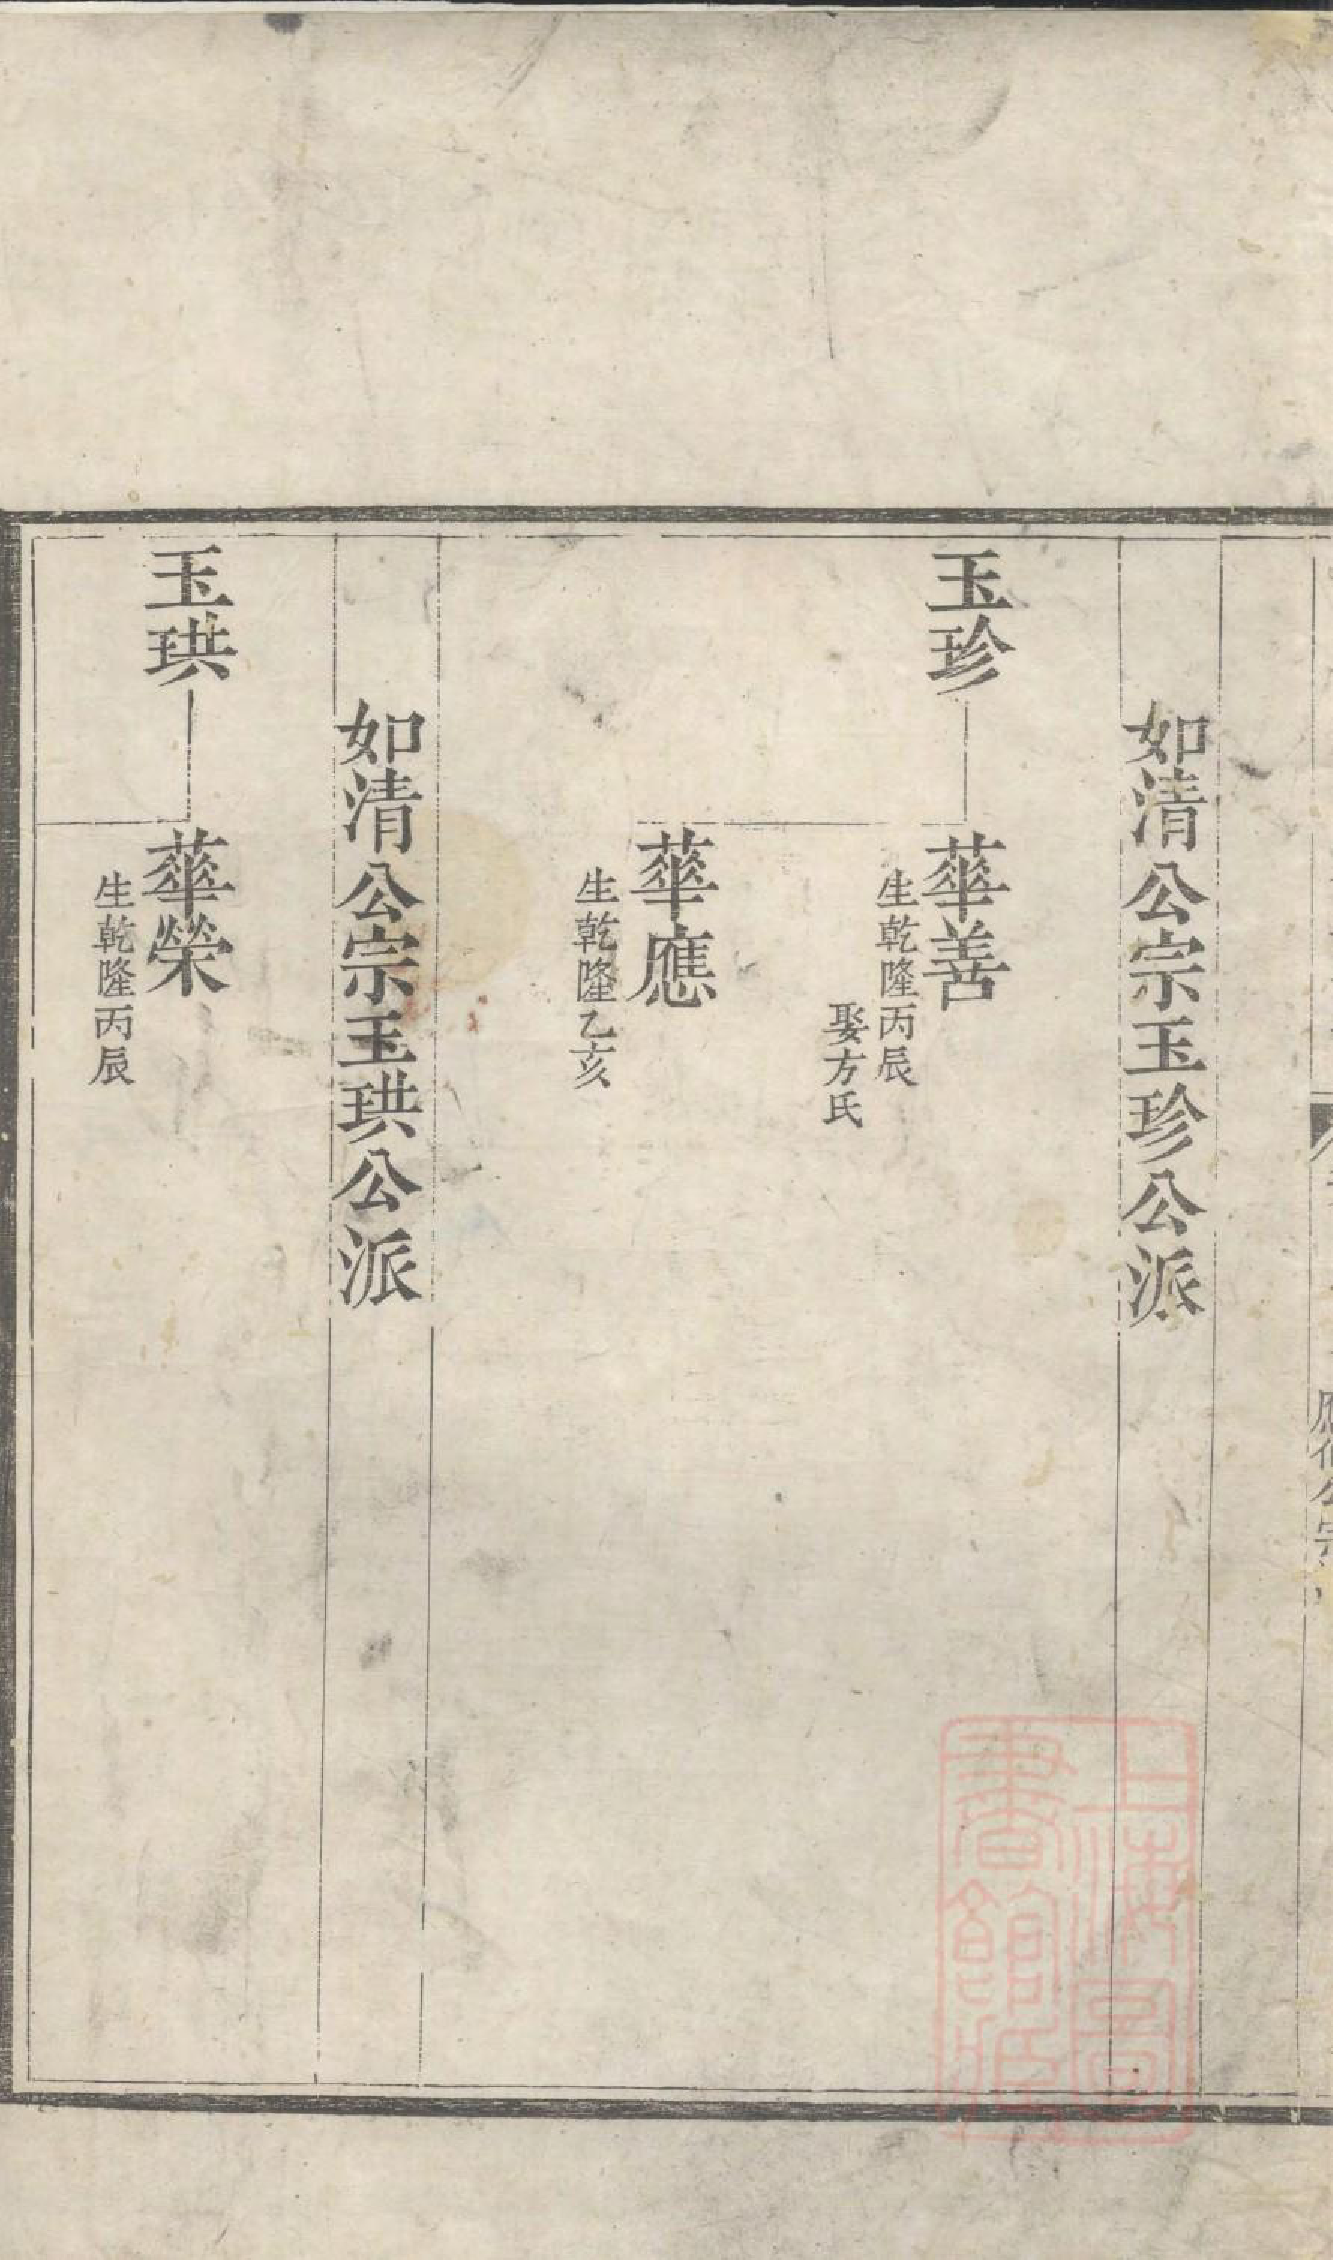 如清公宗玉珍公派
玉珍
華善
生乾隆丙辰
娶方氏
華應
生乾隆乙亥
如清公宗玉珙公派
玉珙
華榮
生乾隆丙辰
上海圖
書館藏